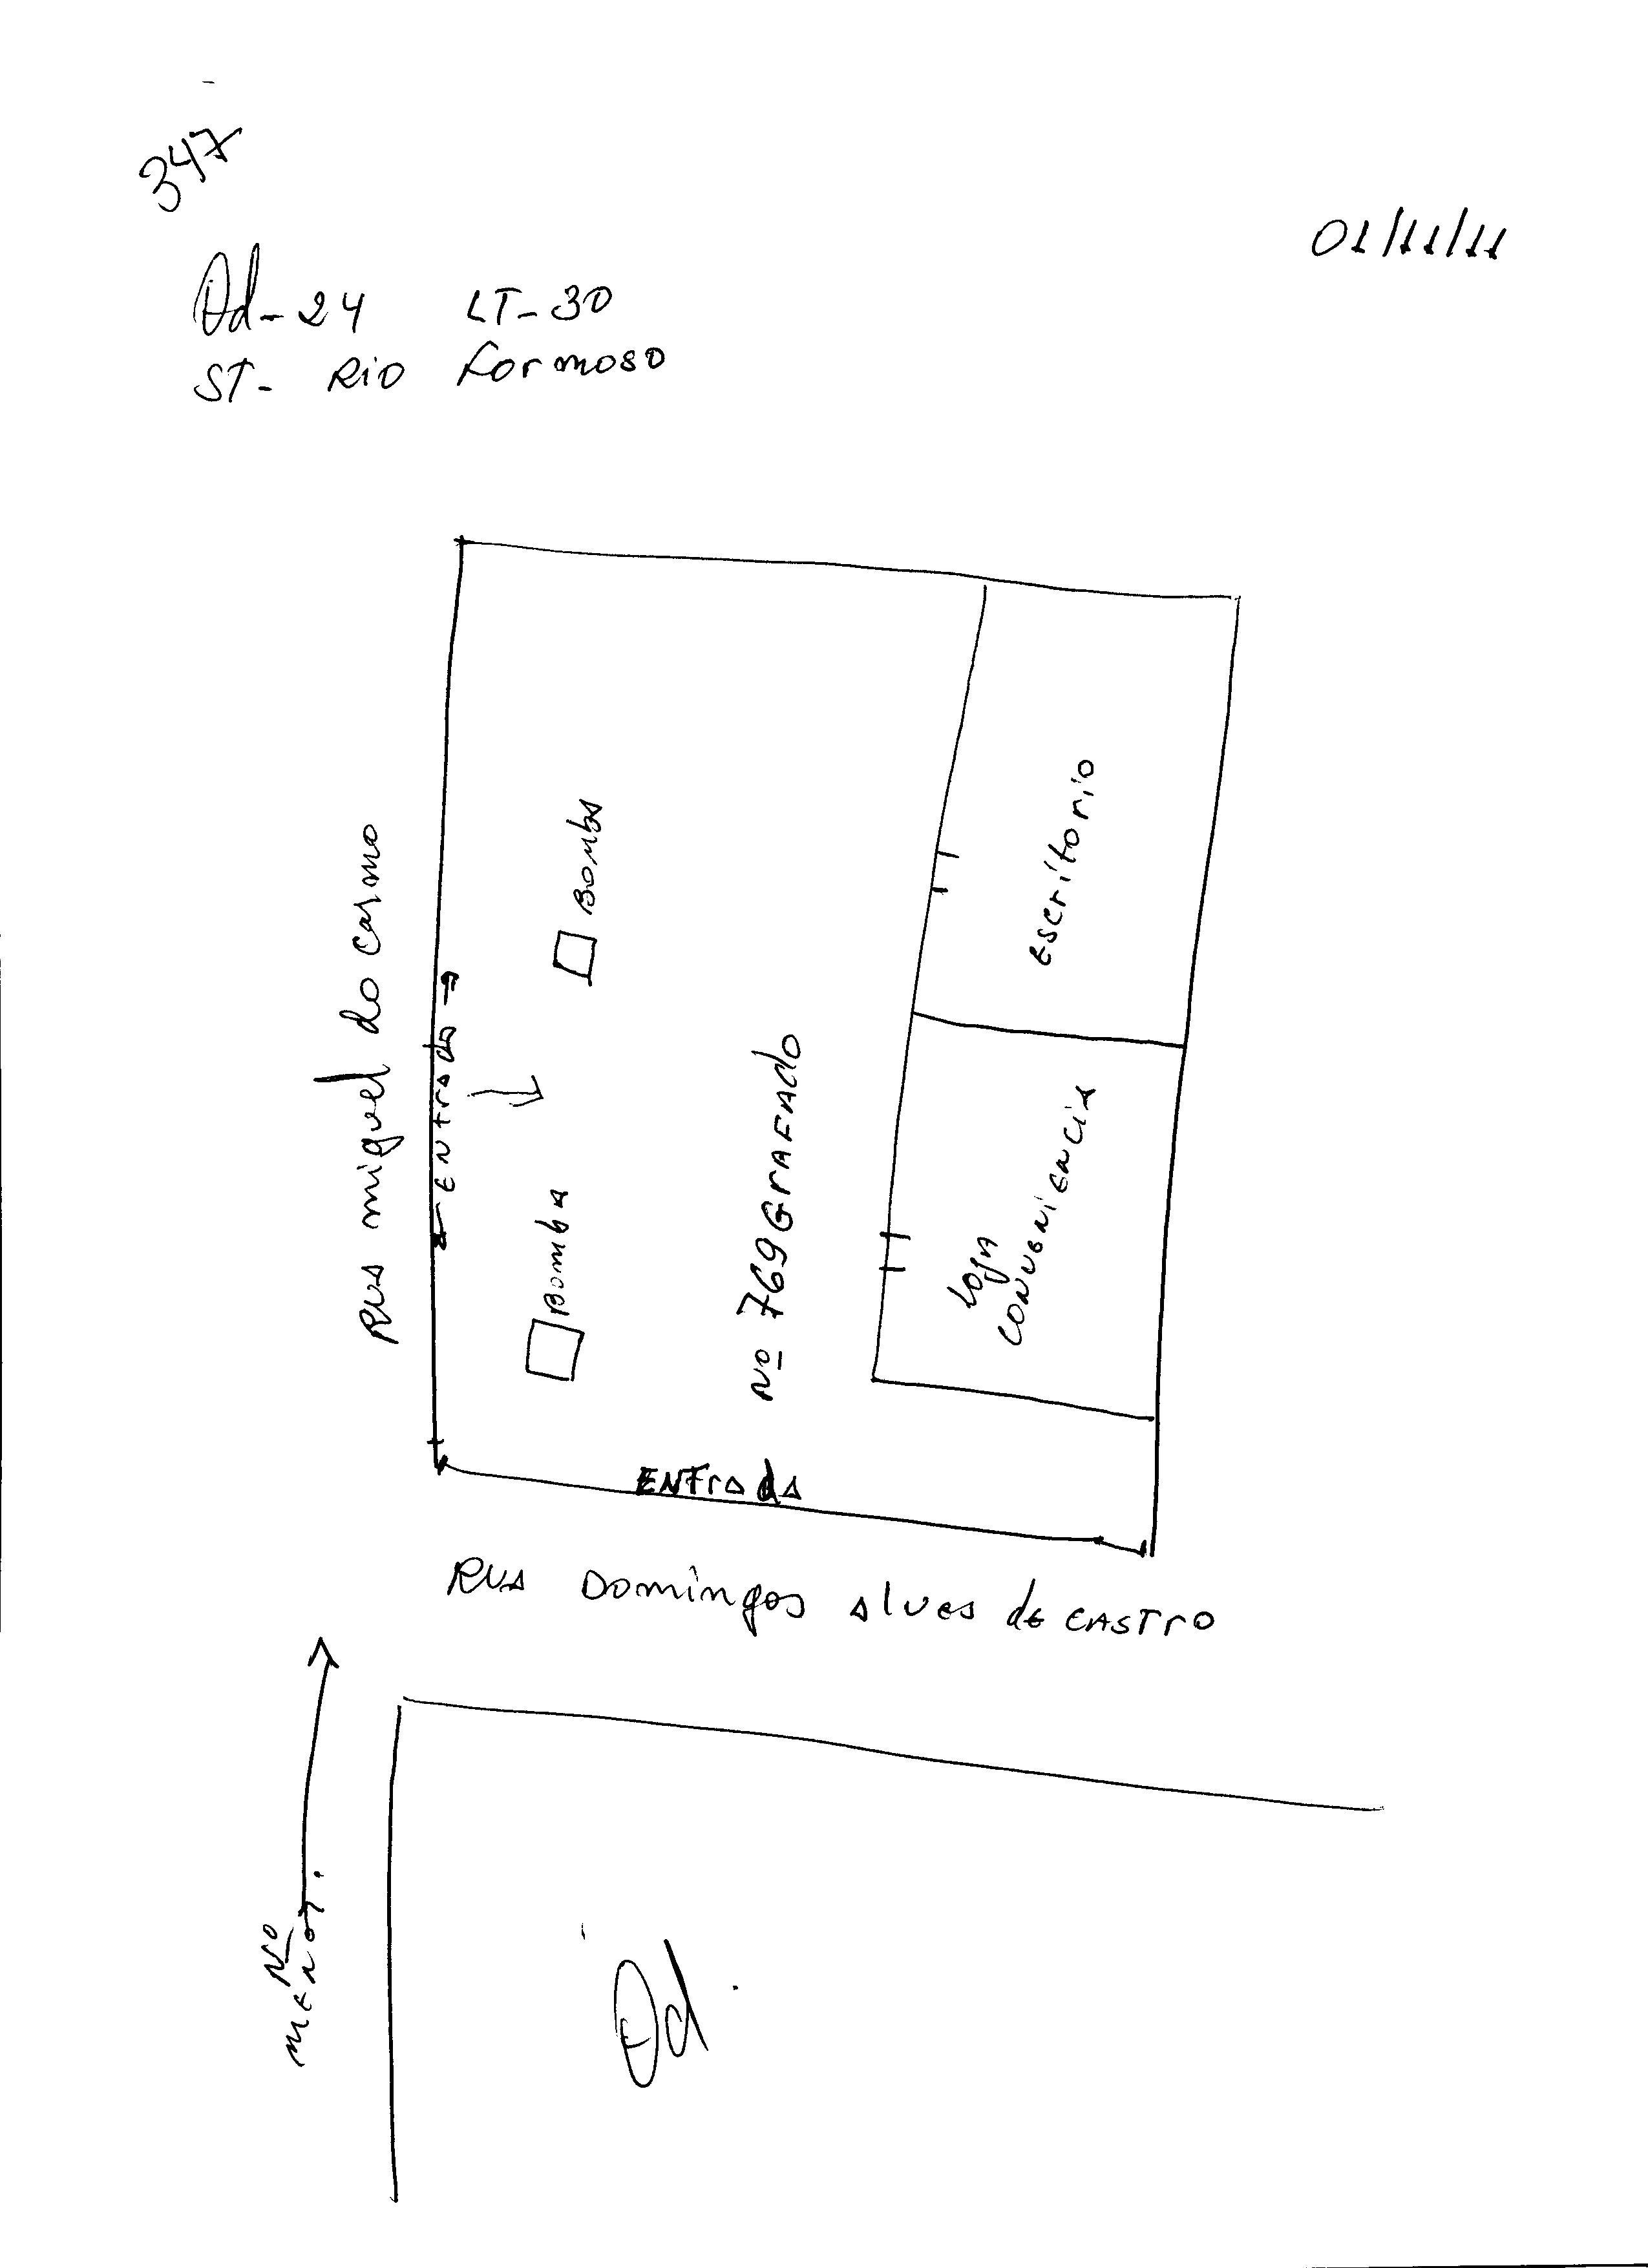 347
01/11/11
Qd-24 LT-30
ST- Rio formoso
Rua miguel do carmo
Entrada
Bomba
Bomba
Nº 769 GrAFAdo
escritorio
loja
conveniencia
ENTrada
RUA Domingos alves de CASTRO
Nº
menor.
Qd.